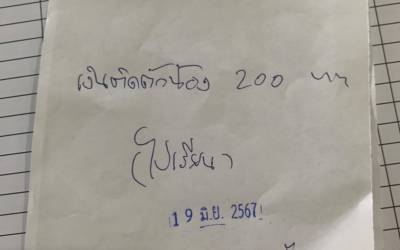 เงินติดตัวน้อง 200 บาท
(ไปเรียน)
19 มิ.ย. 2567